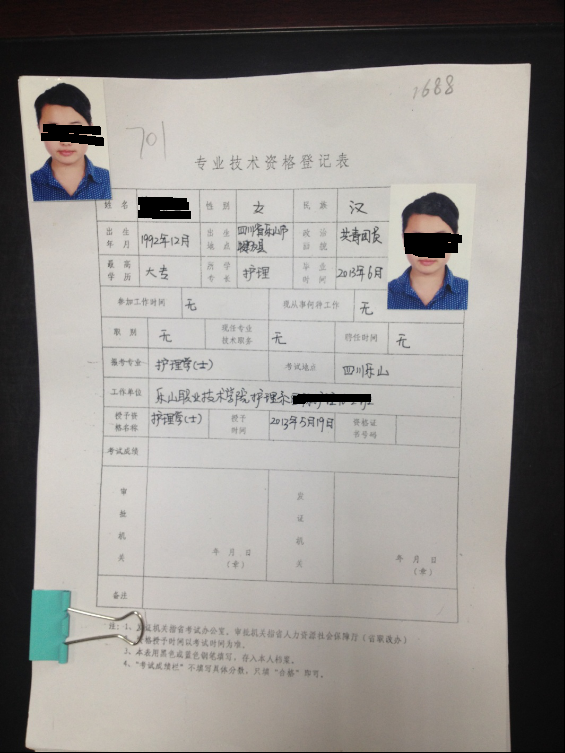 1688
701
专业技术资格登记表
姓名 性别 女 民族 汉
出生年月 1992年12月 出生地点 四川省乐山市犍为县 政治面貌 共青团员
最高学历 大专 所学专长 护理 毕业时间 2013年6月
参加工作时间 无 现从事何种工作 无
职别 无 现任专业技术职务 无 聘任时间 无
报考专业 护理学(士) 考试地点 四川乐山
工作单位 乐山职业技术学院护理系
授予资格名称 护理学(士) 授予时间 2013年5月19日 资格证书号码
考试成绩
审批机关 年 月 日 (章) 发证机关 年 月 日 (章)
备注
注：1、发证机关指省考试办公室，审批机关指省人力资源社会保障厅（省职改办）
资格授予时间以考试时间为准。
3、本表用黑色或蓝色钢笔填写，存入本人档案。
4、“考试成绩栏”不填写具体分数，只填“合格”即可。